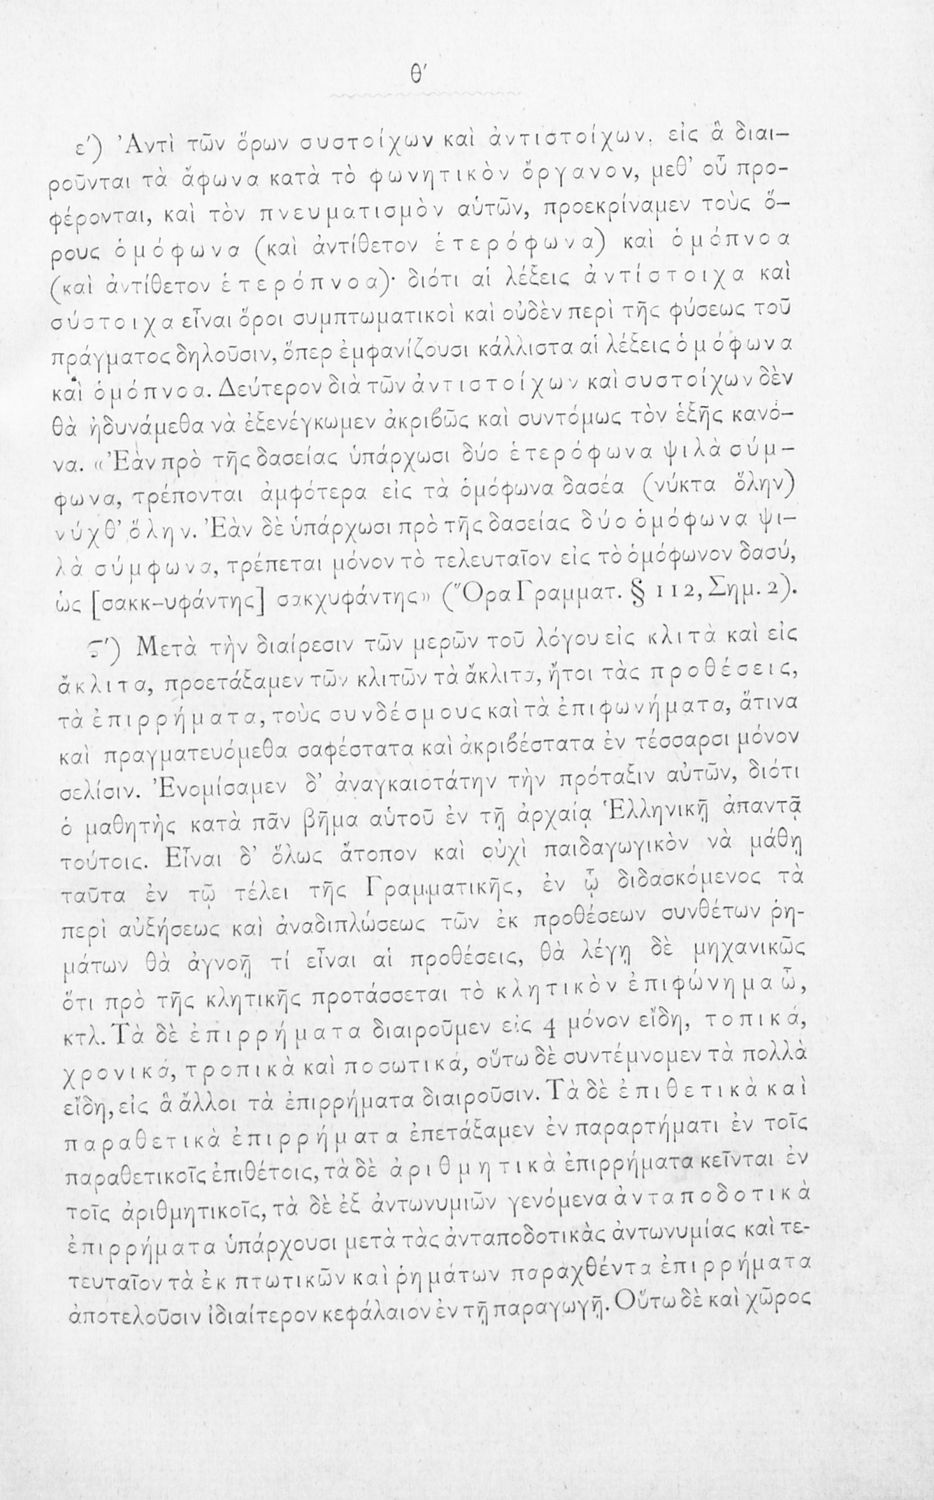 θ′
ε′) Ἀντὶ τῶν ὅρων συστοίχων καὶ ἀντιστοίχων, εἰς ἃ διαι-
ροῦνται τὰ ἄφωνα κατὰ τὸ φωνητικὸν ὄργανον, μεθ’ οὗ προ-
φέρονται, καὶ τὸν πνευματισμὸν αὐτῶν, προεκρίναμεν τοὺς ὅ-
ρους ὁμόφωνα (καὶ ἀντίθετον ἑτερόφωνα) καὶ ὁμόπνοα
(καὶ ἀντίθετον ἑτερόπνοα)· διότι αἱ λέξεις ἀντίστοιχα καὶ
σύστοιχα εἶναι ὅροι συμπτωματικοὶ καὶ οὐδὲν περὶ τῆς φύσεως τοῦ
πράγματος δηλοῦσιν, ὅπερ ἐμφανίζουσι κάλλιστα αἱ λέξεις ὁμόφωνα
καὶ ὁμόπνοα. Δεύτερον διὰ τῶν ἀντιστοίχων καὶ συστοίχων δὲν
θὰ ἠδυνάμεθα νὰ ἐξενέγκωμεν ἀκριβῶς καὶ συντόμως τὸν ἑξῆς κανό-
να. «Ἐὰν πρὸ τῆς δασείας ὑπάρχωσι δύο ἑτερόφωνα ψιλὰ σύμ-
φωνα, τρέπονται ἀμφότερα εἰς τὰ ὁμόφωνα δασέα (νύκτα ὅλην)
νύχθ’ ὅλην. Ἐὰν δὲ ὑπάρχωσι πρὸ τῆς δασείας δύο ὁμόφωνα ψι-
λὰ σύμφωνα, τρέπεται μόνον τὸ τελευταῖον εἰς τὸ ὁμόφωνον δασύ,
ὡς [σακκ-υφάντης] σακχυφάντης» (Ὅρα Γραμματ. § 112, Σημ. 2).
ϛ′) Μετὰ τὴν διαίρεσιν τῶν μερῶν τοῦ λόγου εἰς κλιτὰ καὶ εἰς
ἄκλιτα, προετάξαμεν τῶν κλιτῶν τὰ ἄκλιτα, ἤτοι τὰς προθέσεις,
τὰ ἐπιρρήματα, τοὺς συνδέσμους καὶ τὰ ἐπιφωνήματα, ἅτινα
καὶ πραγματευόμεθα σαφέστατα καὶ ἀκριβέστατα ἐν τέσσαρσι μόνον
σελίσιν. Ἐνομίσαμεν δ’ ἀναγκαιοτάτην τὴν πρόταξιν αὐτῶν, διότι
ὁ μαθητὴς κατὰ πᾶν βῆμα αὑτοῦ ἐν τῇ ἀρχαίᾳ Ἑλληνικῇ ἀπαντᾷ
τούτοις. Εἶναι δ’ ὅλως ἄτοπον καὶ οὐχὶ παιδαγωγικὸν νὰ μάθῃ
ταῦτα ἐν τῷ τέλει τῆς Γραμματικῆς, ἐν ᾧ διδασκόμενος τὰ
περὶ αὐξήσεως καὶ ἀναδιπλώσεως τῶν ἐκ προθέσεων συνθέτων ῥη-
μάτων θὰ ἀγνοῇ τί εἶναι αἱ προθέσεις, θὰ λέγῃ δὲ μηχανικῶς
ὅτι πρὸ τῆς κλητικῆς προτάσσεται τὸ κλητικὸν ἐπιφώνημα ὦ,
κτλ. Τὰ δὲ ἐπιρρήματα διαιροῦμεν εἰς 4 μόνον εἴδη, τοπικά,
χρονικά, τροπικὰ καὶ ποσωτικά, οὕτω δὲ συντέμνομεν τὰ πολλὰ
εἴδη, εἰς ἃ ἄλλοι τὰ ἐπιρρήματα διαιροῦσιν. Τὰ δὲ ἐπιθετικὰ καὶ
παραθετικὰ ἐπιρρήματα ἐπετάξαμεν ἐν παραρτήματι ἐν τοῖς
παραθετικοῖς ἐπιθέτοις, τὰ δὲ ἀριθμητικὰ ἐπιρρήματα κεῖνται ἐν
τοῖς ἀριθμητικοῖς, τὰ δὲ ἐξ ἀντωνυμιῶν γενόμενα ἀνταποδοτικὰ
ἐπιρρήματα ὑπάρχουσι μετὰ τὰς ἀνταποδοτικὰς ἀντωνυμίας καὶ τε-
τευταῖον τὰ ἐκ πτωτικῶν καὶ ῥημάτων παραχθέντα ἐπιρρήματα
ἀποτελοῦσιν ἰδιαίτερον κεφάλαιον ἐν τῇ παραγωγῇ. Οὕτω δὲ καὶ χῶρος